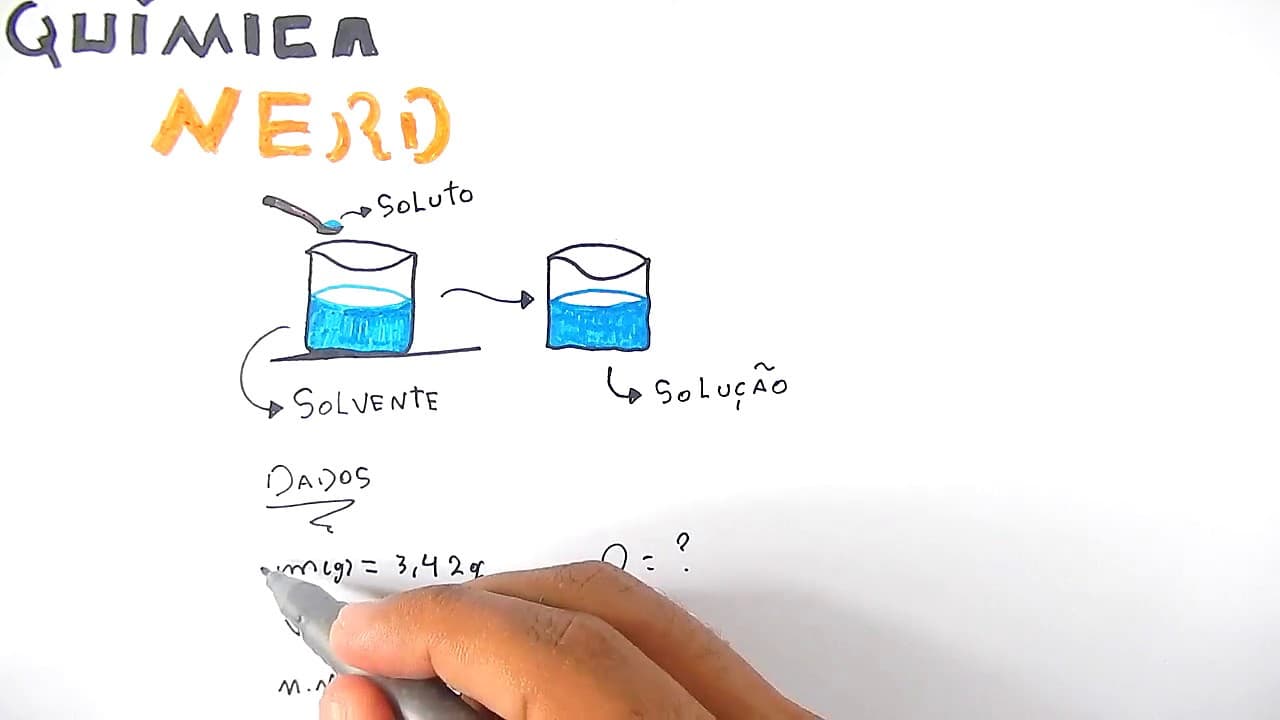 QUÍMICA
NERD
SOLUTO
SOLVENTE
SOLUÇÃO
DADOS
m(g) = 3,42g
= ?